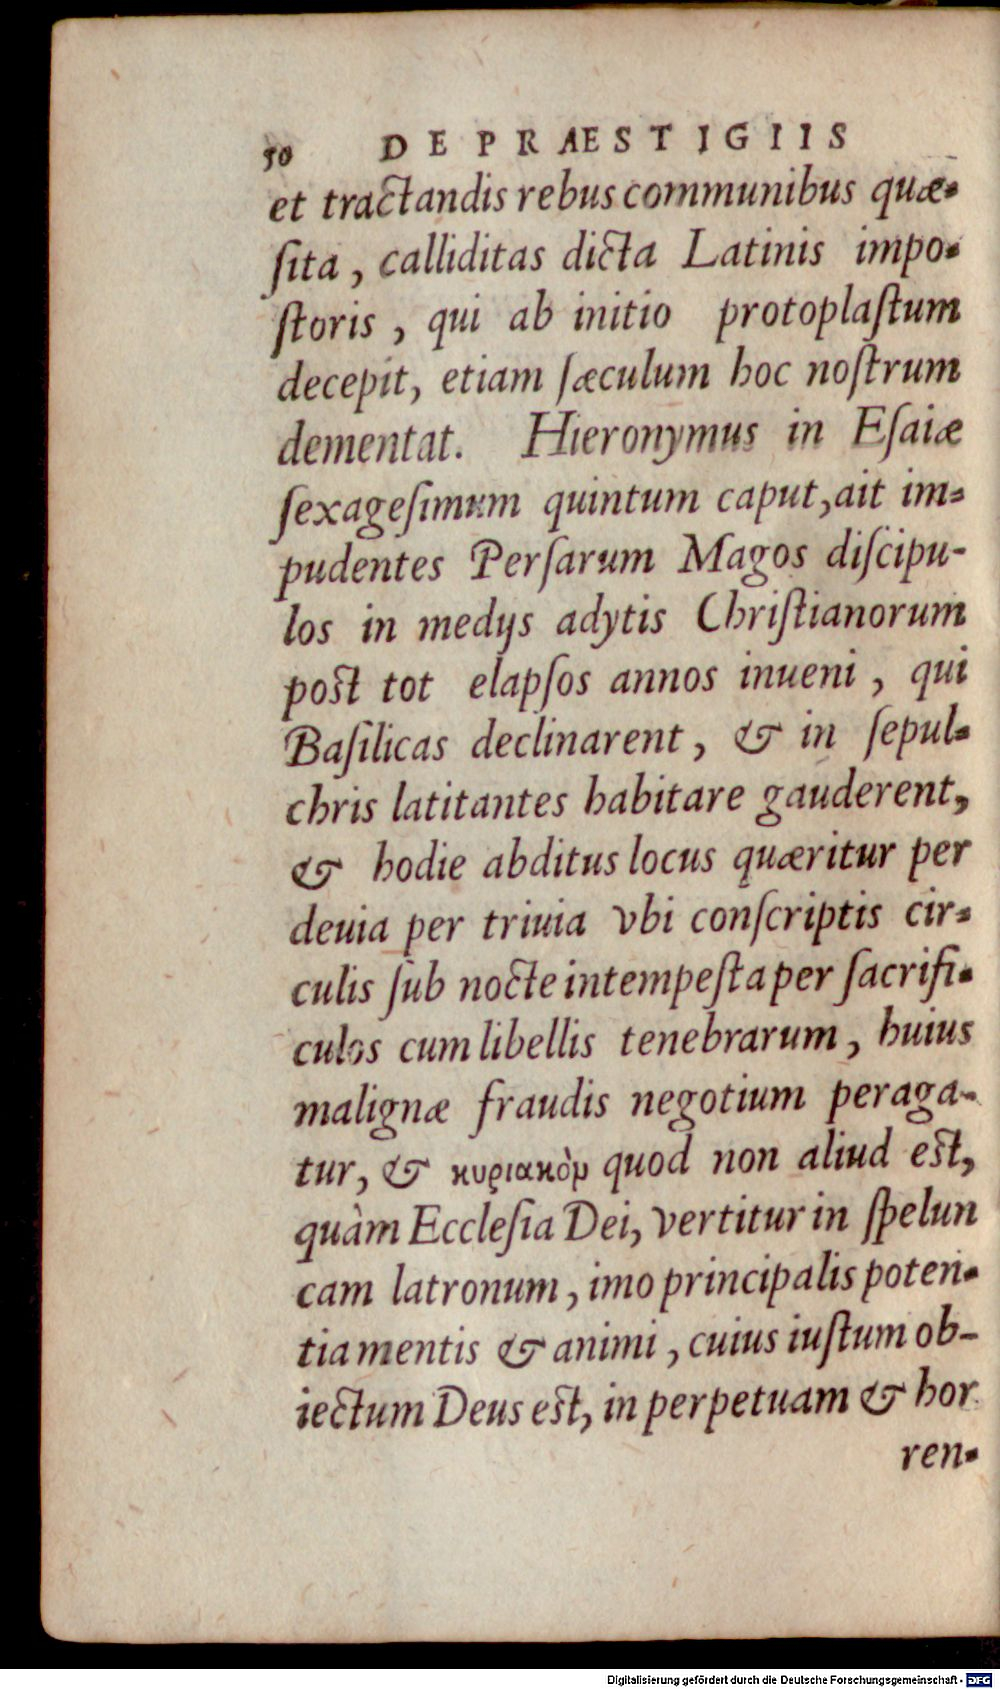 50 DE PRÆSTIGIIS
et tractandis rebus communibus quæ-
ſita, calliditas dicta Latinis impo-
ſtoris, qui ab initio protoplaſtum
decepit, etiam ſæculum hoc noſtrum
dementat. Hieronymus in Eſaiæ
ſexageſimum quintum caput, ait im-
pudentes Perſarum Magos diſcipu-
los in medijs adytis Chriſtianorum
poſt tot elapſos annos inueni, qui
Baſilicas declinarent, & in ſepul-
chris latitantes habitare gauderent,
& hodie abditus locus quæritur per
deuia per triuia vbi conſcriptis cir-
culis ſub nocte intempeſta per ſacrifi-
culos cum libellis tenebrarum, huius
malignæ fraudis negotium peraga-
tur, & κυριακὸμ quod non aliud eſt,
quàm Eccleſia Dei, vertitur in ſpelun
cam latronum, imo principalis poten-
tia mentis & animi, cuius iuſtum ob-
iectum Deus eſt, in perpetuam & hor
ren-
Digitalisierung gefördert durch die Deutsche Forschungsgemeinschaft - DFG